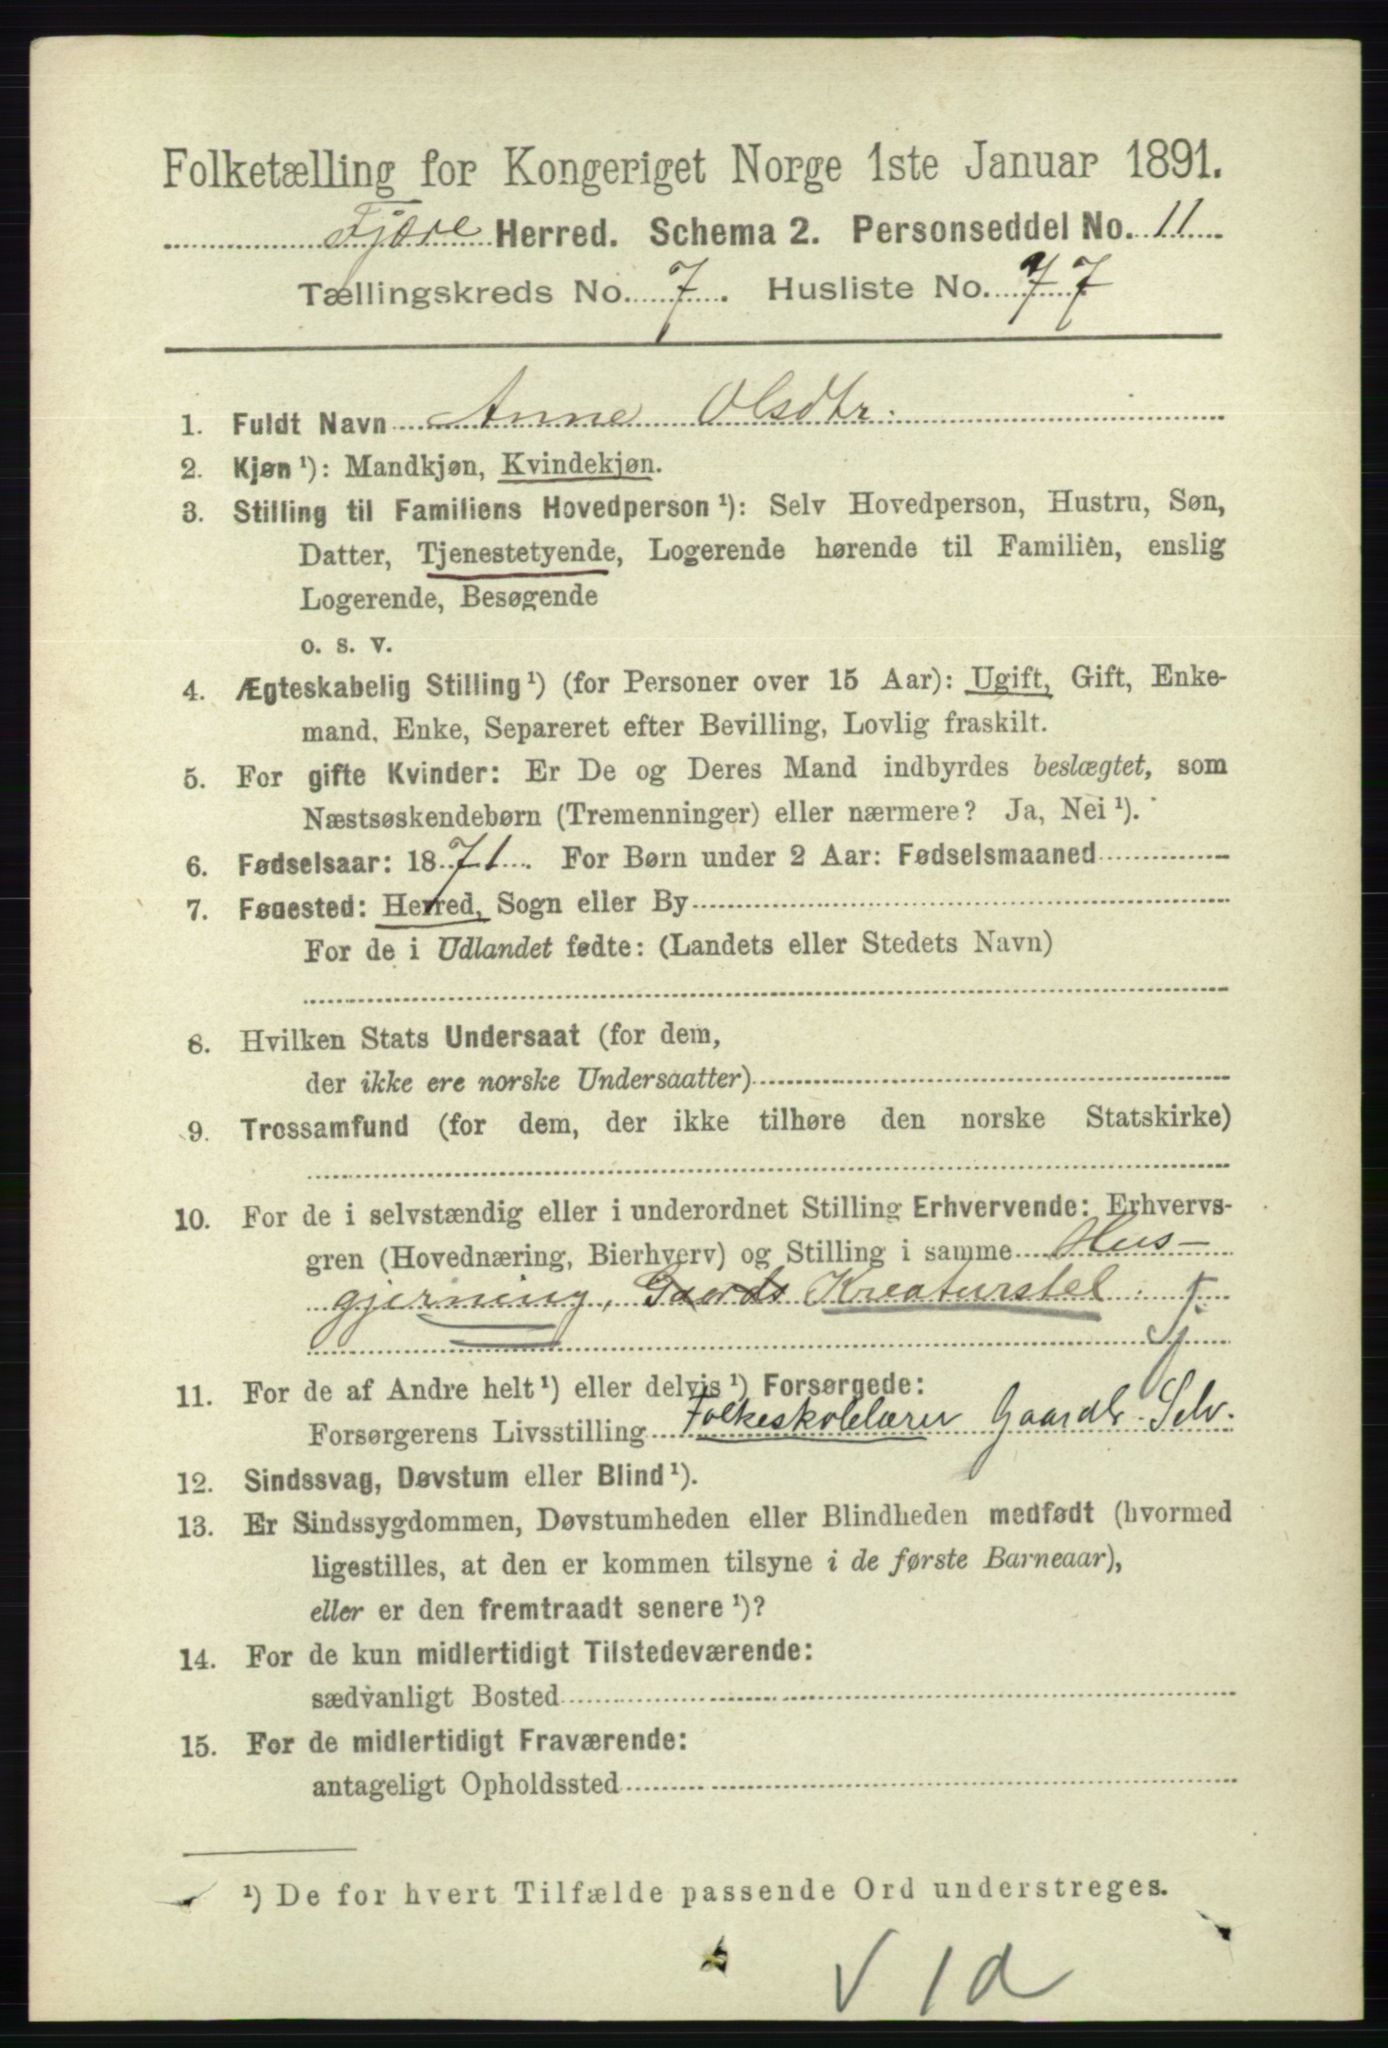 Folketælling for Kongeriget Norge 1ste Januar 1891.
Fjære Herred. Schema 2. Personseddel No. 11
Tællingskreds No. 7. Husliste No. 77
1. Fuldt Navn Anne Olsdtr.
2. Kjøn ¹): Mandkjøn, Kvindekjøn.
3. Stilling til Familiens Hovedperson ¹): Selv Hovedperson, Hustru, Søn,
Datter, Tjenestetyende, Logerende hørende til Familien, enslig
Logerende, Besøgende
o. s. v.
4. Ægteskabelig Stilling ¹) (for Personer over 15 Aar): Ugift, Gift, Enke-
mand, Enke, Separeret efter Bevilling, Lovlig fraskilt.
5. For gifte Kvinder: Er De og Deres Mand indbyrdes beslægtet, som
Næstsøskendebørn (Tremenninger) eller nærmere? Ja, Nei ¹).
6. Fødselsaar: 1871. For Børn under 2 Aar: Fødselsmaaned
7. Fødested: Herred, Sogn eller By
For de i Udlandet fødte: (Landets eller Stedets Navn)
8. Hvilken Stats Undersaat (for dem,
der ikke ere norske Undersaatter)
9. Trossamfund (for dem, der ikke tilhøre den norske Statskirke)
10. For de i selvstændig eller i underordnet Stilling Erhvervende: Erhvervs-
gren (Hovednæring, Bierhverv) og Stilling i samme Hus-
gjerning, Gaards Kreaturstel.
11. For de af Andre helt ¹) eller delvis ¹) Forsørgede:
Forsørgerens Livsstilling Folkeskolelærer Gaardb. Selv.
12. Sindssvag, Døvstum eller Blind ¹).
13. Er Sindssygdommen, Døvstumheden eller Blindheden medfødt (hvormed
ligestilles, at den er kommen tilsyne i de første Barneaar),
eller er den fremtraadt senere ¹)?
14. For de kun midlertidigt Tilstedeværende:
sædvanligt Bosted
15. For de midlertidigt Fraværende:
antageligt Opholdssted
¹) De for hvert Tilfælde passende Ord understreges.
V 1 d